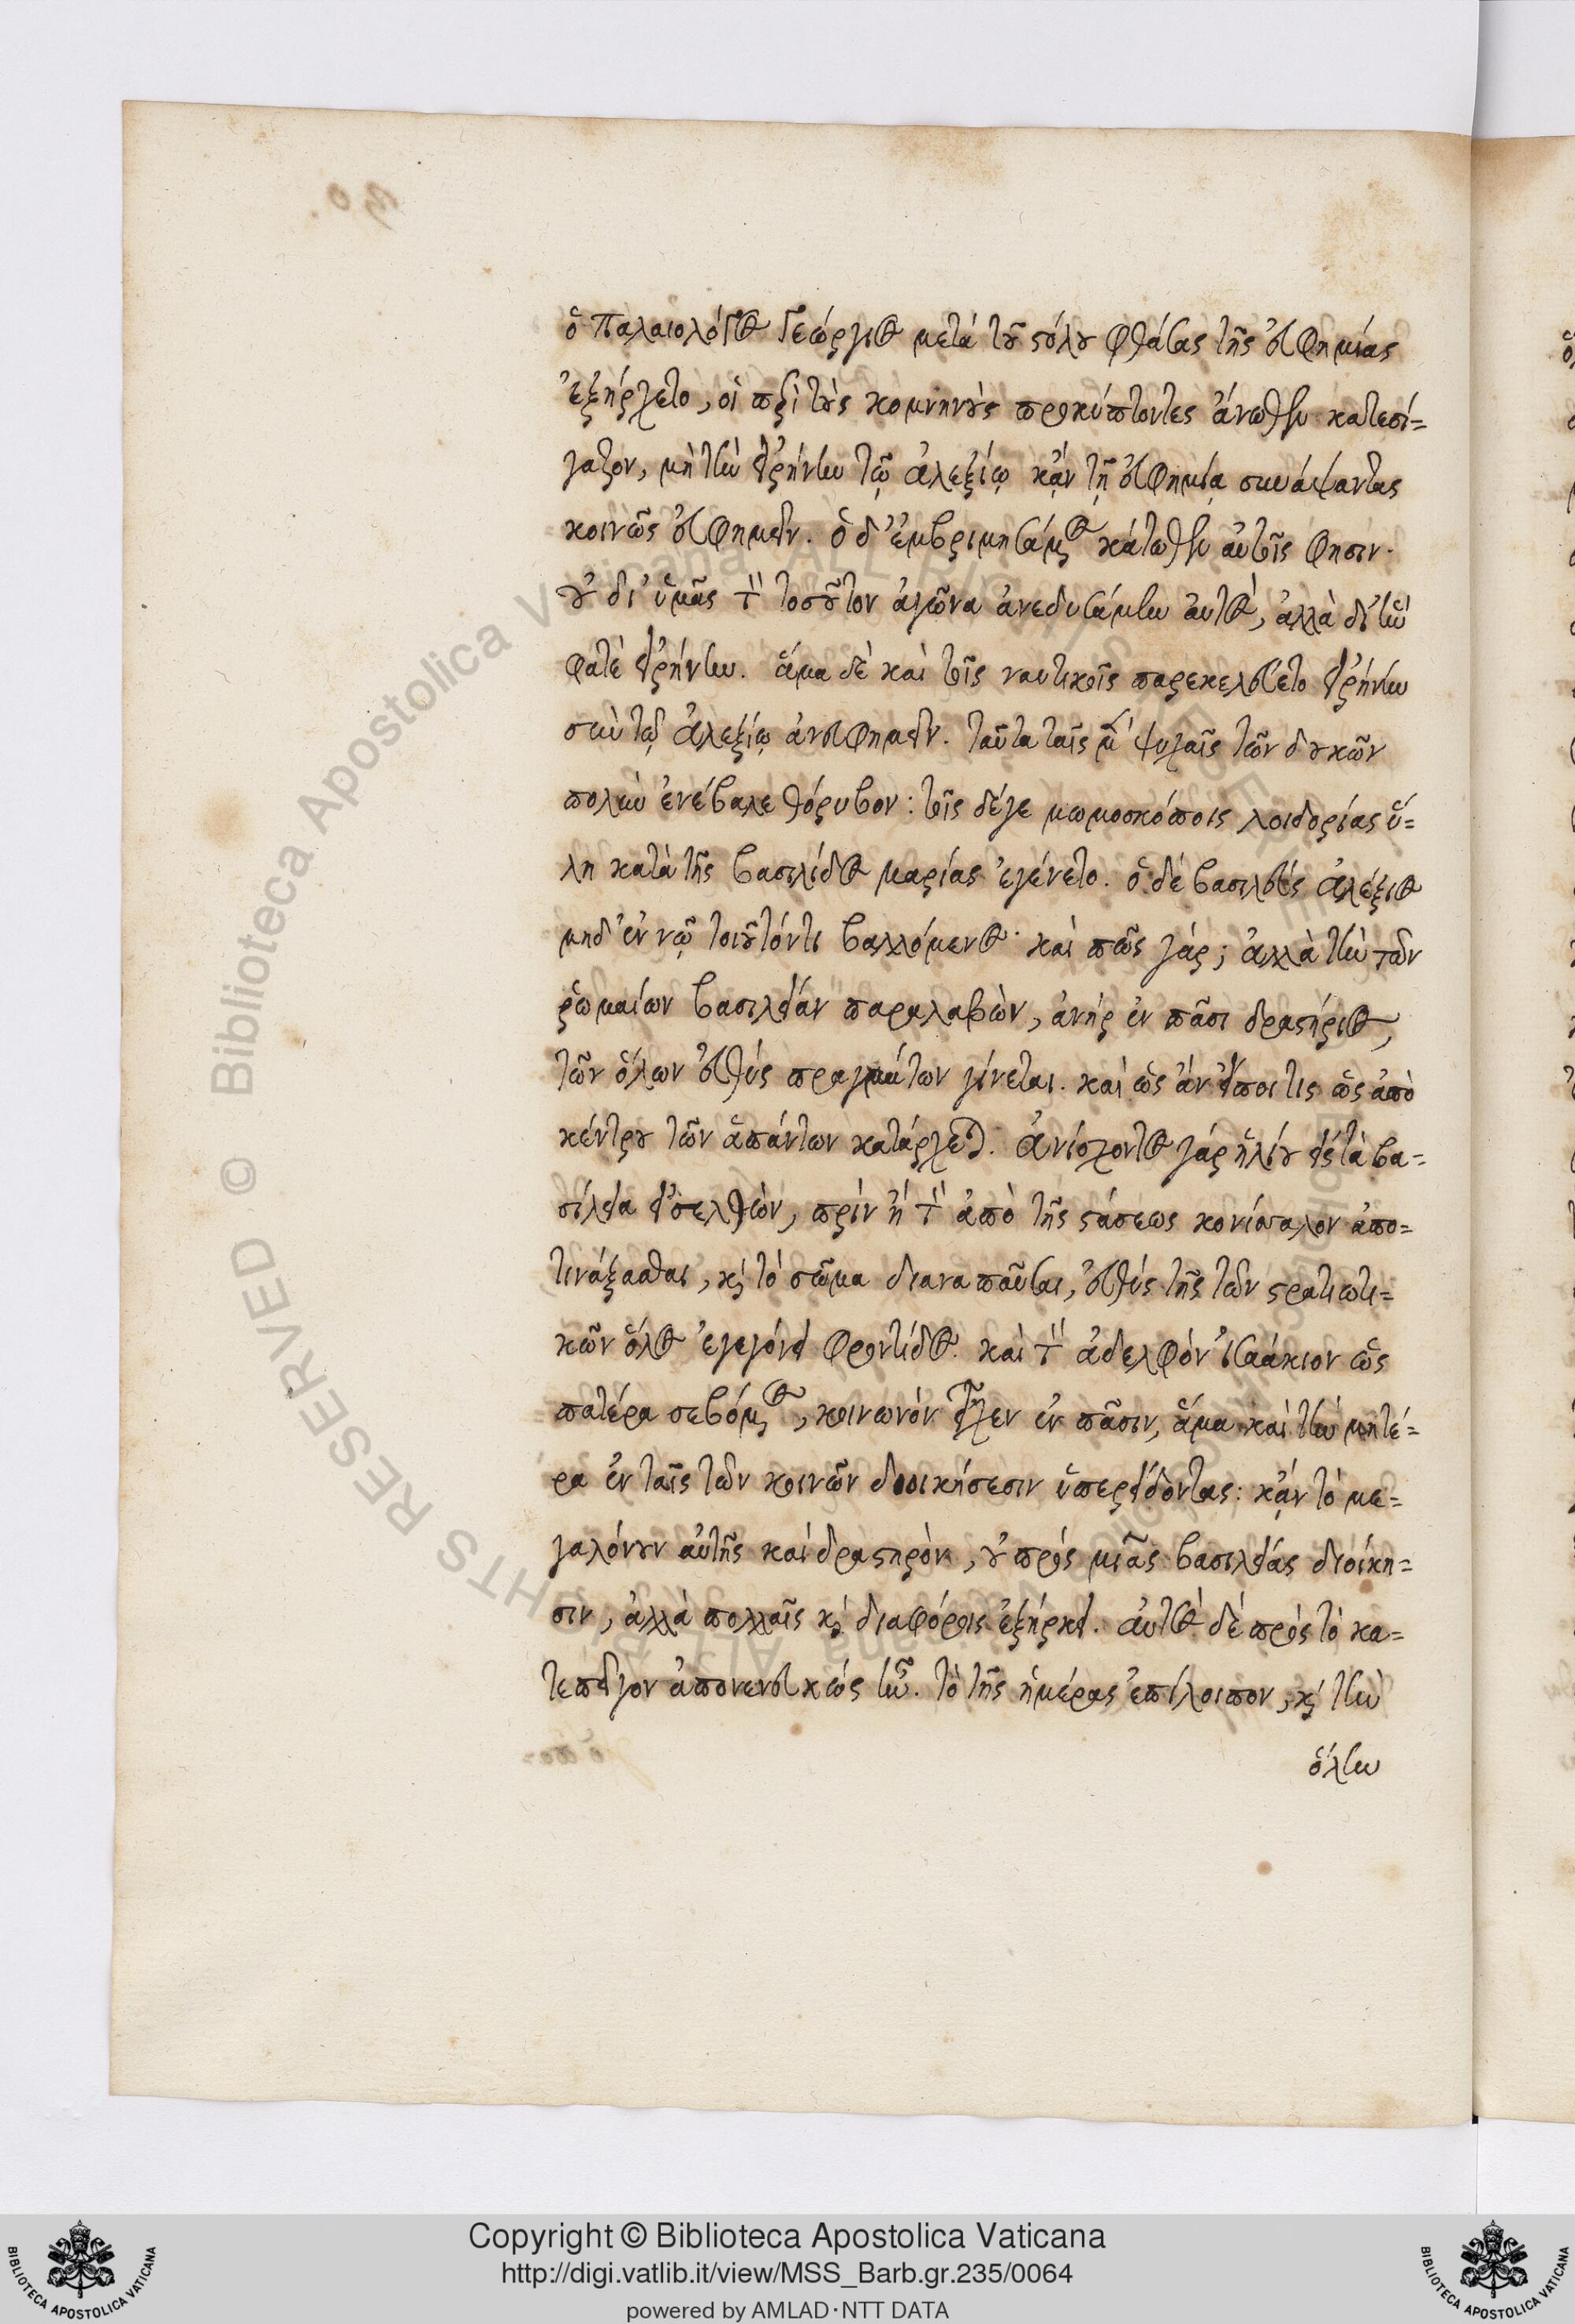 ὁ Παλαιολόγος Γεώργιος μετὰ τοῦ στόλου φθάσας τῆς εὐφημίας
ἐξήρχετο, οἱ περὶ τοὺς κομνηνοὺς προκύπτοντες ἄνωθεν κατεσί=
γαζον, μὴ τὴν εἰρήνην τῷ ἀλεξίῳ κἀν τῇ εὐφημίᾳ συνάψαντας
κοινῶς εὐφημεῖν. ὁ δ' ἐμβριμησάμενος κάτωθεν αὐτοῖς φησιν·
οὐ δι' ὑμᾶς τὸν τοσοῦτον ἀγῶνα ἀνεδυσάμην αὐτὸς, ἀλλὰ δι' ἣν
φατὲ εἰρήνην. ἅμα δὲ καὶ τοῖς ναυτικοῖς παρεκελεύετο εἰρήνην
σὺν τῷ ἀλεξίῳ ἀνευφημεῖν. ταῦτα ταῖς μὲν ψυχαῖς τῶν δουκῶν
πολὺν ἐνέβαλε θόρυβον: τοῖς δέγε μωμοσκόποις λοιδορίας ὕ=
λη κατὰ τῆς βασιλίδος μαρίας ἐγένετο. ὁ δὲ βασιλεὺς ἀλέξιος
μηδ' ἐν νῷ τοιοῦτόν τι βαλλόμενος· καὶ πῶς γάρ; ἀλλὰ τὴν τῶν
ῥωμαίων βασιλείαν παραλαβὼν, ἀνὴρ ἐν πᾶσι δραστήριος,
τῶν ὅλων εὐθὺς πραγμάτων γίνεται. καὶ ὡς ἂν εἴποι τις ὡς ἀπὸ
κέντρου τῶν ἁπάντων κατάρχεται. ἀνίσχοντος γὰρ ἡλίου εἰς τὰ βα=
σίλεια εἰσελθὼν, πρὶν ἢ τὸν ἀπὸ τῆς στάσεως κονίσαλον ἀπο=
τινάξασθαι, καὶ τὸ σῶμα διαναπαῦσαι, εὐθὺς τῆς τῶν στρατιωτι=
κῶν ὅλος ἐγεγόνει φροντίδος. καὶ τὸν ἀδελφὸν ἰσαάκιον ὡς
πατέρα σεβόμενος, κοινωνὸν εἶχεν ἐν πᾶσιν, ἅμα καὶ τὴν μητέ=
ρα ἐν ταῖς τῶν κοινῶν διοικήσεσιν ὑπερείδοντας: κἂν τὸ με=
γαλόνουν αὐτῆς καὶ δραστηρὸν, οὐ πρὸς μιᾶς βασιλείας διοίκη=
σιν, ἀλλὰ πολλαῖς καὶ διαφόροις ἐξήρκει. αὐτὸς δὲ πρὸς τὸ κα=
τεπεῖγον ἀπονενευκὼς ἦν. τὸ τῆς ἡμέρας ἐπίλοιπον, καὶ τὴν
ὅλην
Copyright © Biblioteca Apostolica Vaticana
http://digi.vatlib.it/view/MSS_Barb.gr.235/0064
powered by AMLAD·NTT DATA